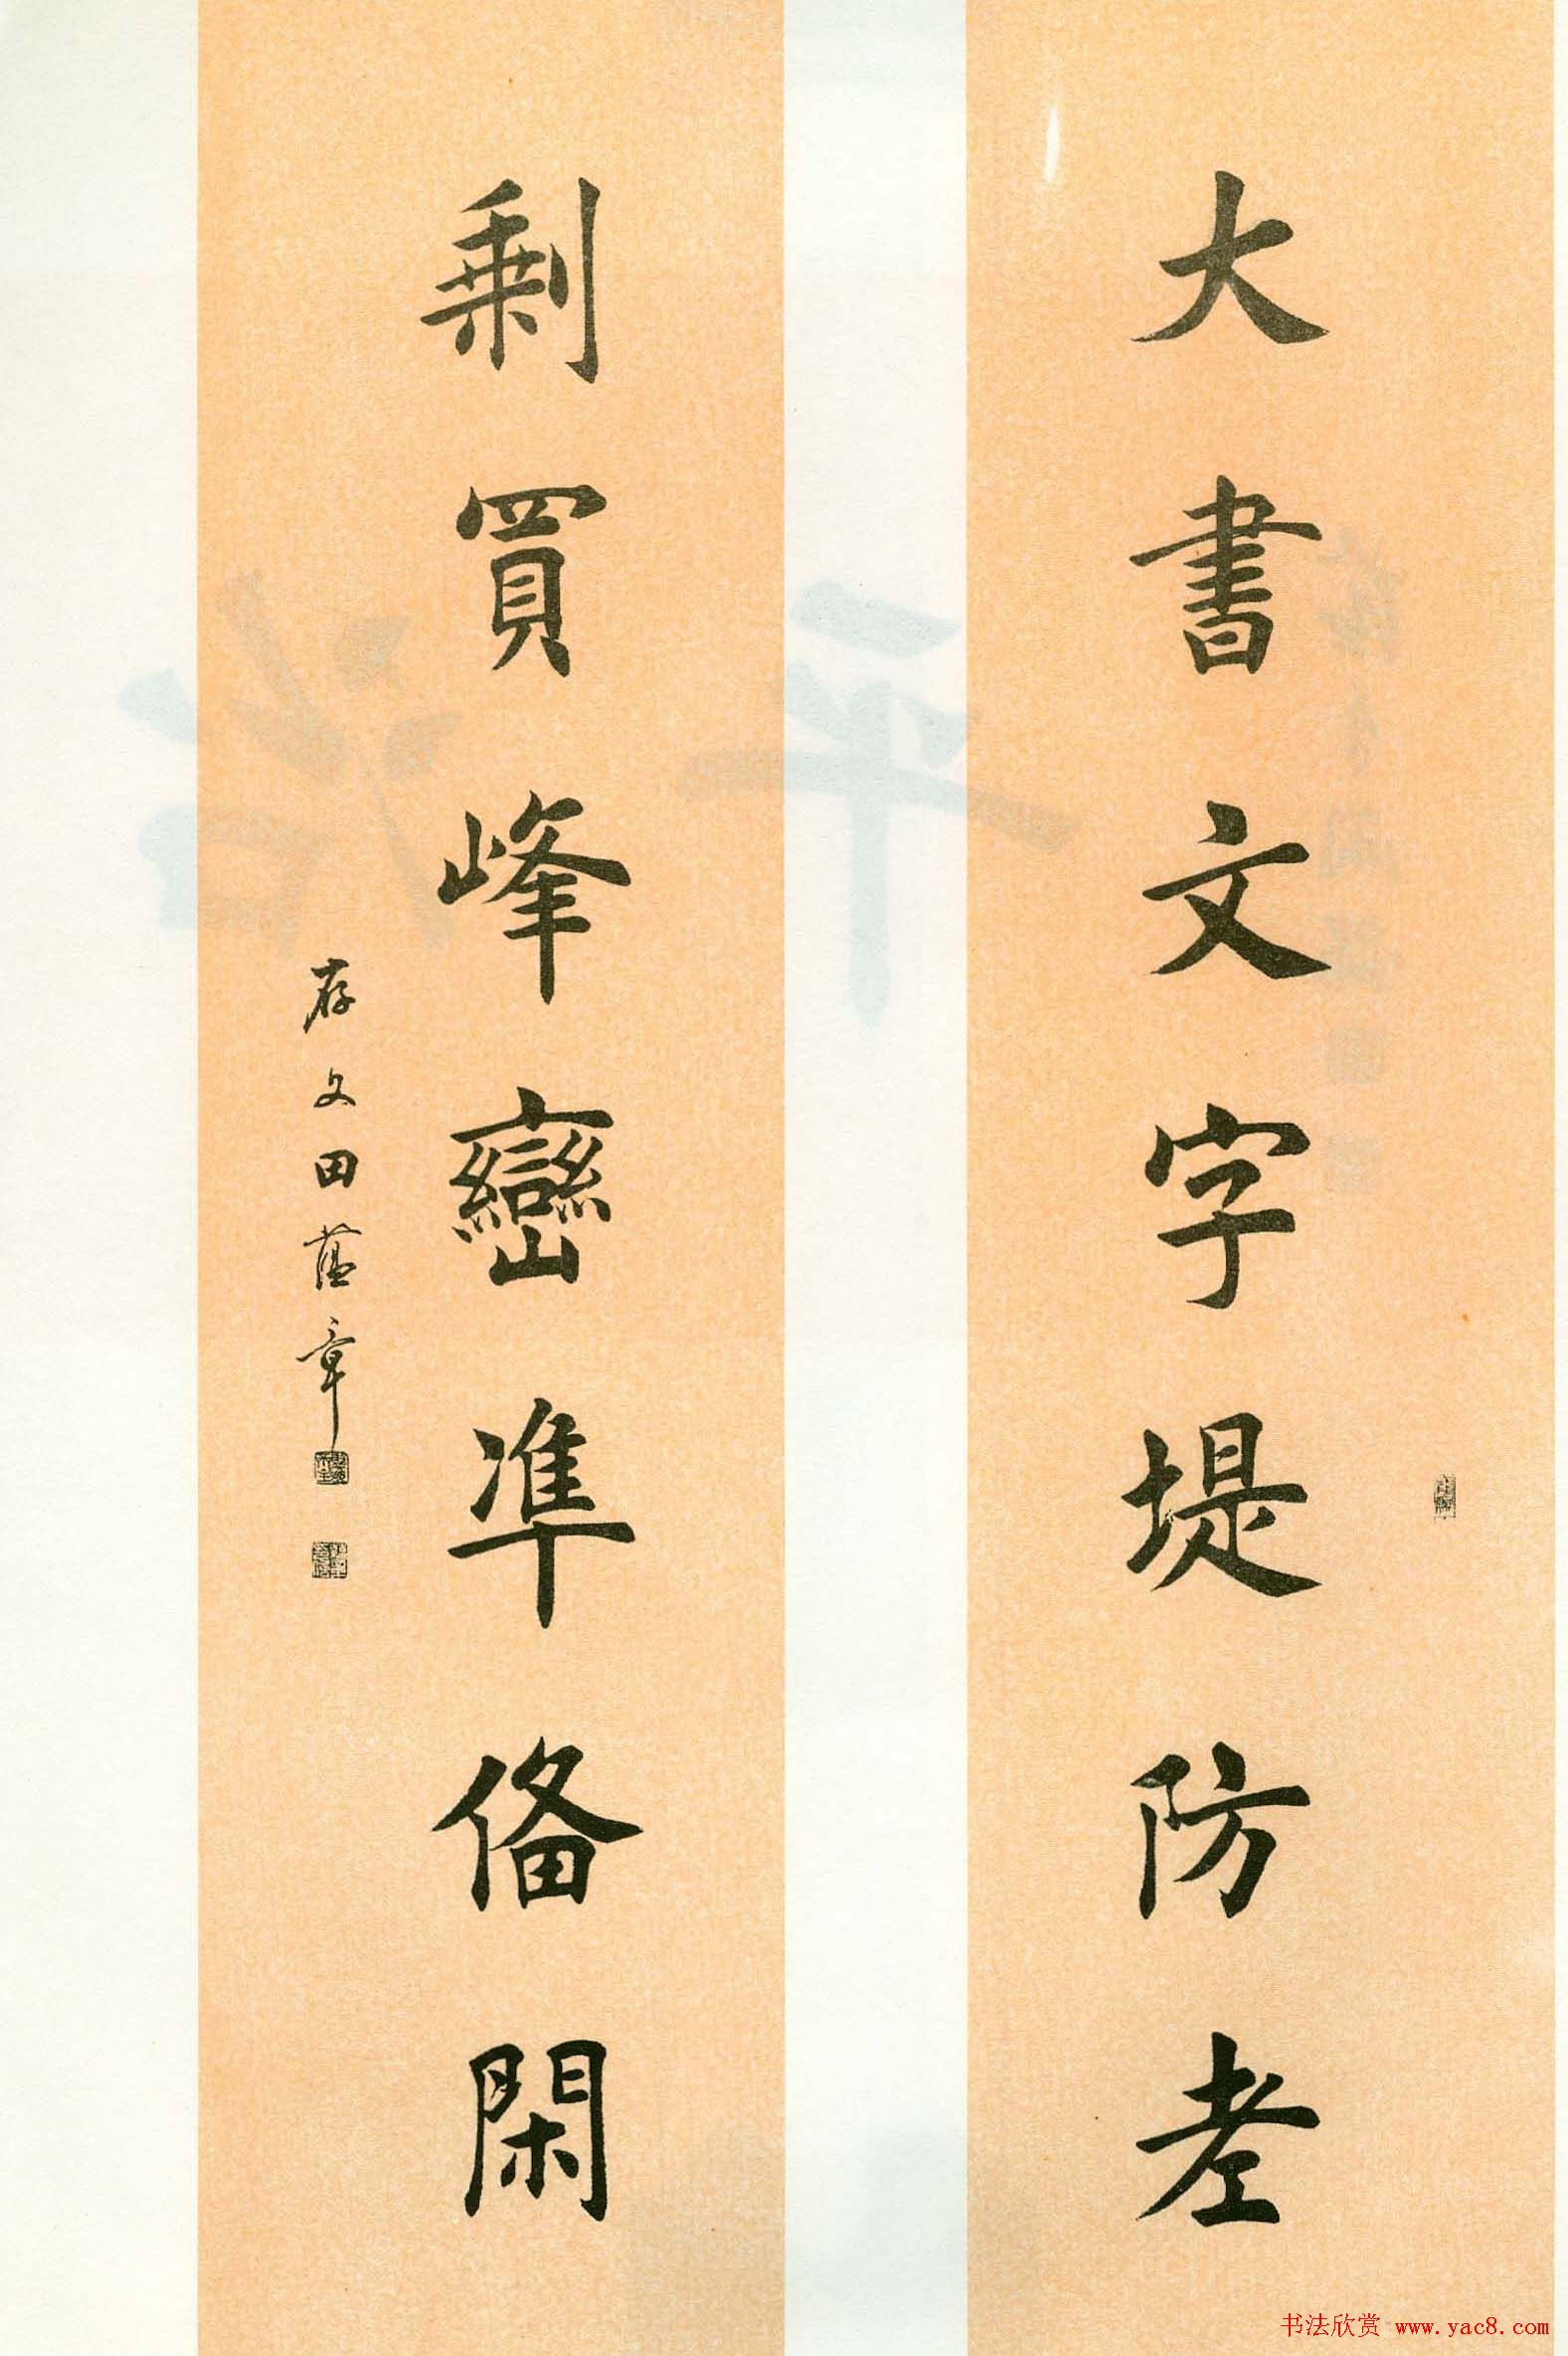 大書文字堤防老
剩買峰巒準俻閑
存文田蕴章
书法欣赏 www.yac8.com